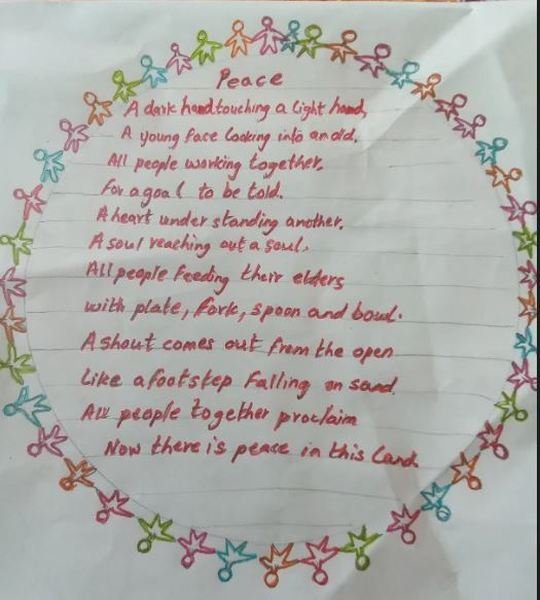 Peace
A dark hand touching a light hand,
A young face looking into an old,
All people working together,
For a goal to be told.
A heart understanding another.
A soul reaching out a soul,
All people feeding their elders
with plate, fork, spoon and bowl.
A shout comes out from the open
Like a footstep falling on sand.
All people together proclaim
Now there is peace in this land.